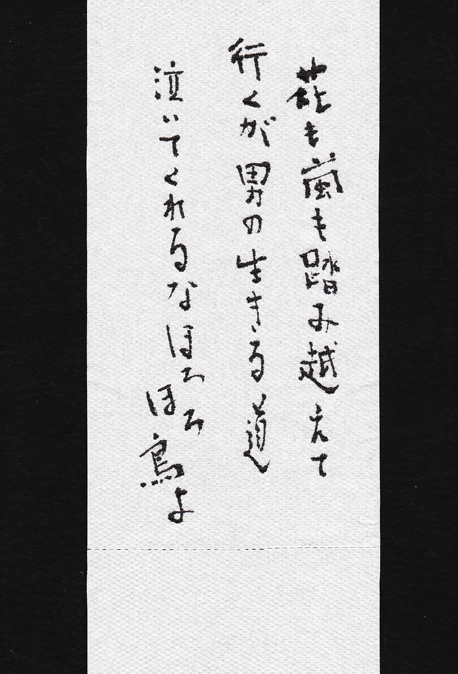 花も嵐も踏み越えて
行くが男の生きる道
泣いてくれるなほろほろ鳥よ